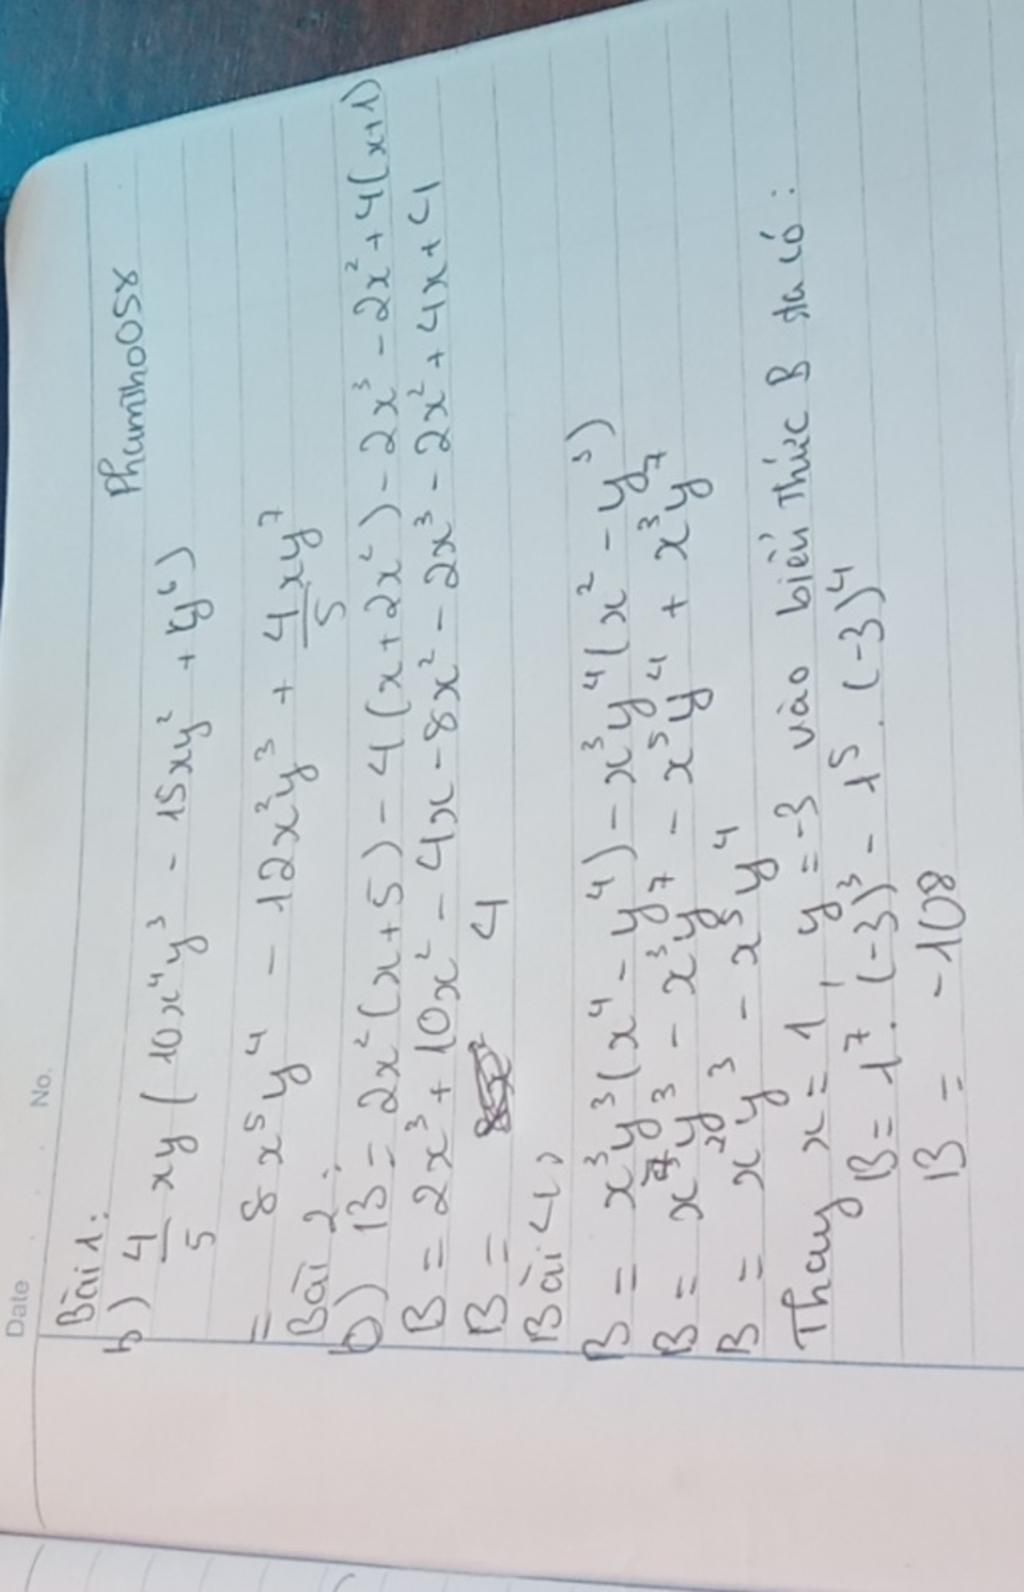 Date No.
Bài 1: Phamtho058
b) 4/5 xy ( 10x⁴y³ - 15xy² + y⁶)
= 8x⁵y⁴ - 12x²y³ + 4/5 xy⁷
Bài 2:
b) B = 2x²(x+5) - 4(x+2x²) - 2x³ - 2x² + 4(x+1)
B = 2x³ + 10x² - 4x - 8x² - 2x³ - 2x² + 4x + 4
B = 4
Bài 4)
B = x³y³(x⁴ - y⁴) - x³y⁴(x² - y³)
B = x⁷y³ - x³y⁷ - x⁵y⁴ + x³y⁷
B = x⁷y³ - x⁵y⁴
Thay x = 1, y = -3 vào biểu thức B ta có:
B = 1⁷. (-3)³ - 1⁵. (-3)⁴
B = -108